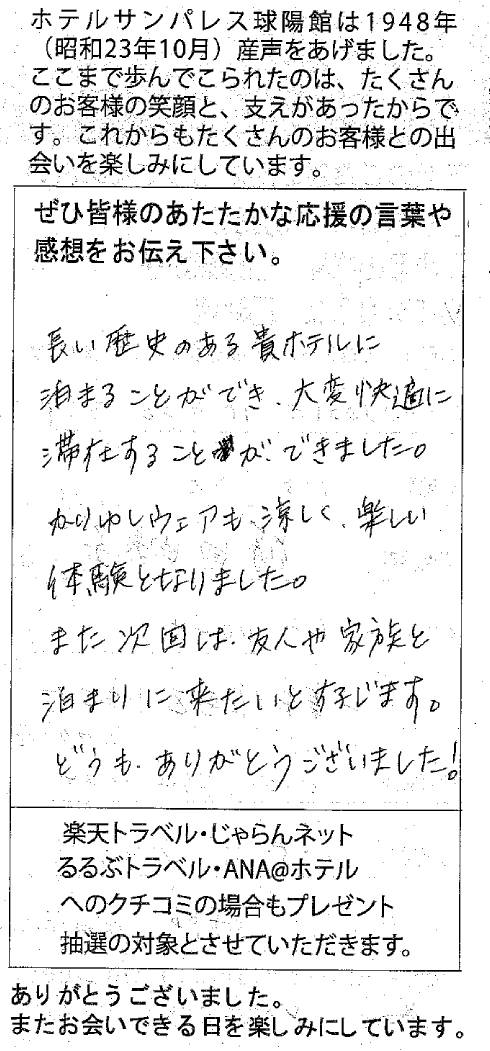 ホテルサンパレス球陽館は1948年
（昭和23年10月）産声をあげました。
ここまで歩んでこられたのは、たくさん
のお客様の笑顔と、支えがあったからで
す。これからもたくさんのお客様との出
会いを楽しみにしています。
ぜひ皆様のあたたかな応援の言葉や
感想をお伝え下さい。
長い歴史のある貴ホテルに
泊まることができ、大変快適に
滞在することができました。
かりゆしウェアも涼しく、楽しい
体験となりました。
また次回は、友人や家族と
泊まりに来たいと存じます。
どうも、ありがとうございました!
楽天トラベル・じゃらんネット
るるぶトラベル・ANA@ホテル
へのクチコミの場合もプレゼント
抽選の対象とさせていただきます。
ありがとうございました。
またお会いできる日を楽しみにしています。